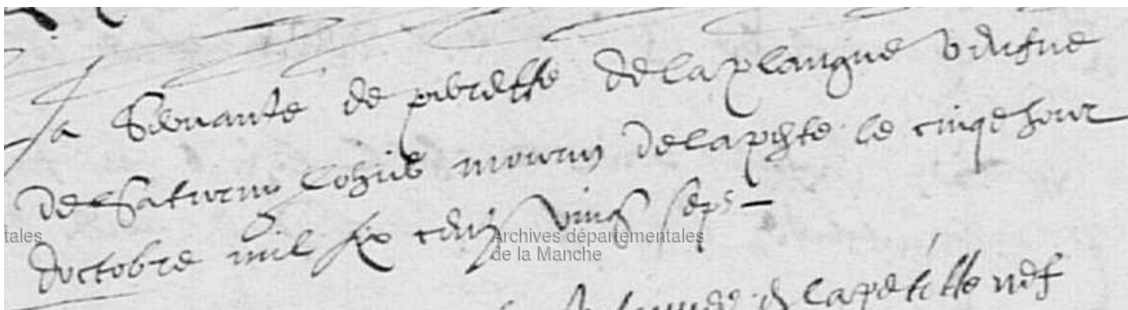 la servante de pierette delaplangue veufue
de Saturnin Cohue mourut de la peste le cinqe jour
doctobre mil six cens vingt sept
de la petitte
Archives départementales
de la Manche
tales